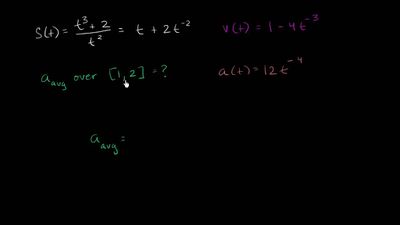 S(t) = \frac{t^3 + 2}{t^2} = t + 2t^{-2}
v(t) = 1 - 4t^{-3}
a_{avg} over [1,2] = ?
a(t) = 12t^{-4}
a_{avg} =